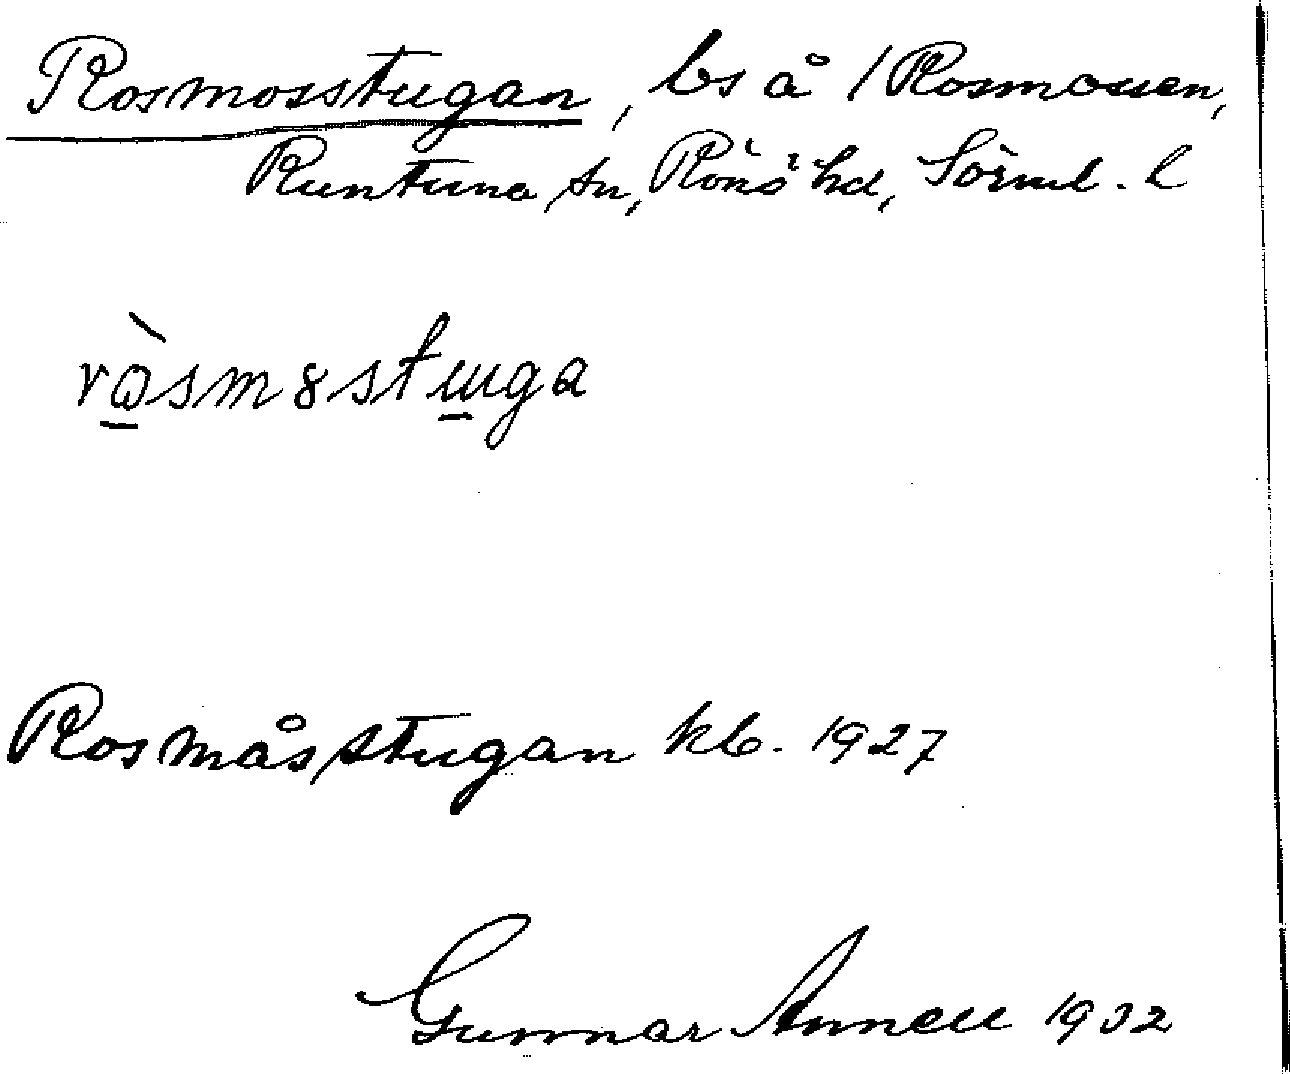 Rosmosstugan, bs å / Rosmossen,
Runtuna sn, Rönö hd, Sörml. l
ròsm8stuga
Rosmåsstugan kb. 1927
Gunnar Annell 1932